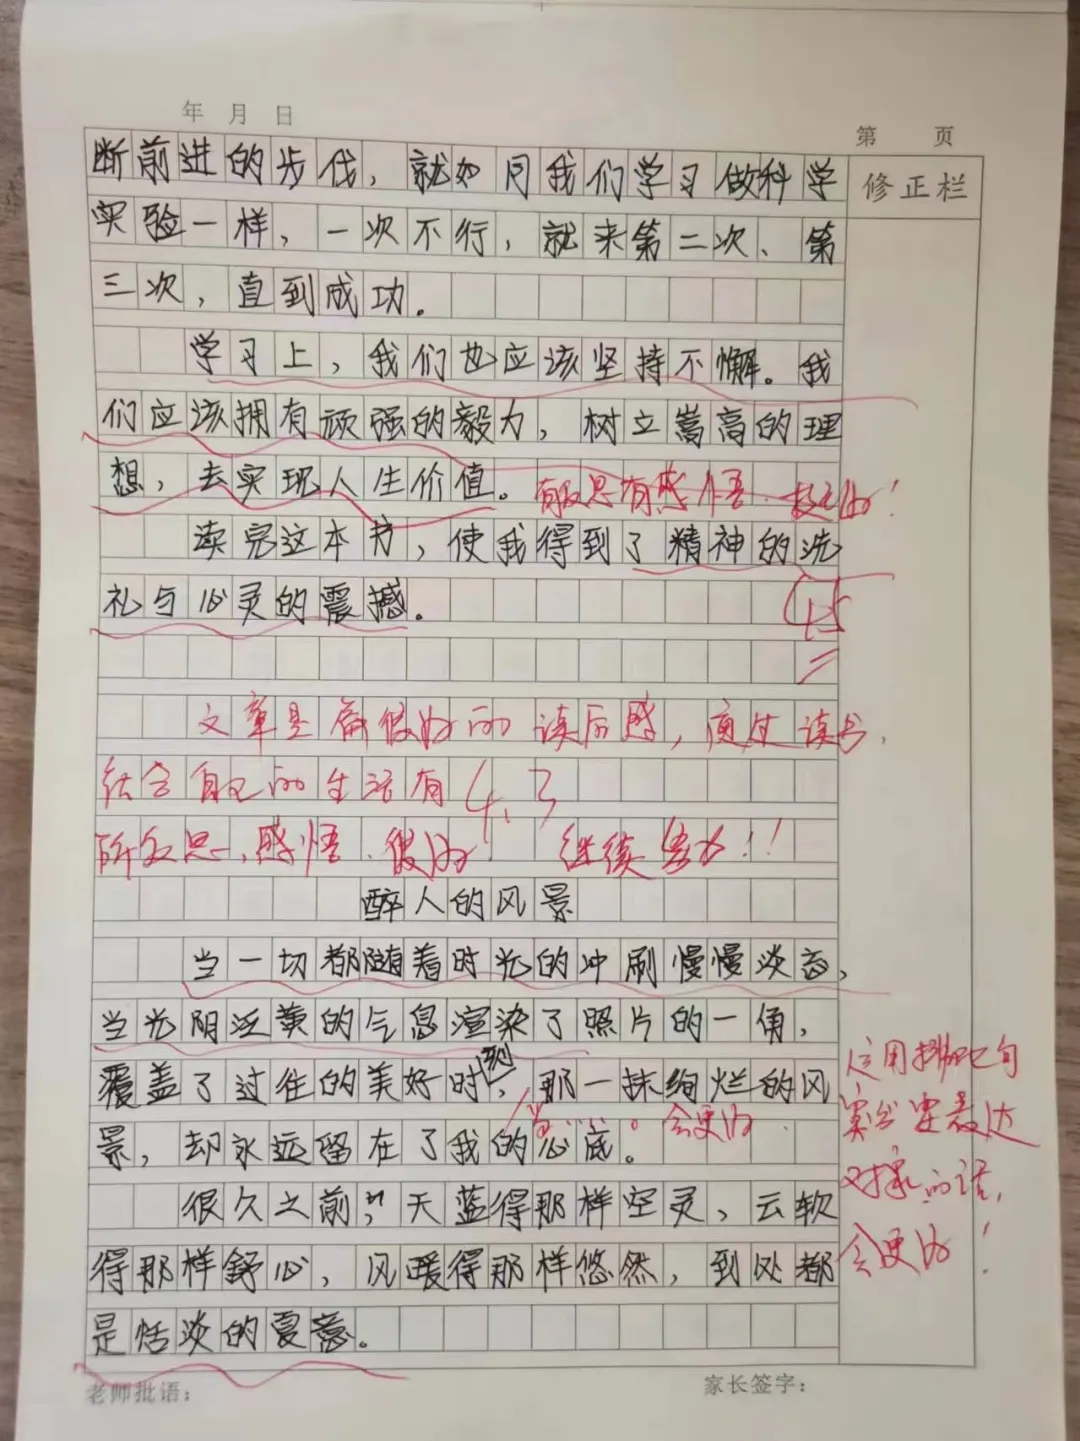 年 月 日
第 页
修正栏
断前进的步伐，就如同我们学习做科学
实验一样，一次不行，就来第二次、第
三次，直到成功。
学习上，我们也应该坚持不懈。我
们应该拥有顽强的毅力，树立嵩高的理
想，去实现人生价值。
有反思有感悟
读完这本书，使我得到了精神的洗
礼与心灵的震撼。
45
文章是篇很好的读后感，通过读书，
结合自己的生活有
4.3
所反思、感悟，很好
继续努力!!
醉人的风景
当一切都随着时光的冲刷慢慢淡忘，
当光阴泛黄的气息渲染了照片的一角，
覆盖了过往的美好时刻，那一抹绚烂的风
当……。会更好
景，却永远留在了我的心底。
运用排比句
突出要表达
对家的话，
会更好！
很久之前，天蓝得那样空灵，云软
得那样舒心，风暖得那样悠然，到处都
是恬淡的夏意。
老师批语：
家长签字：